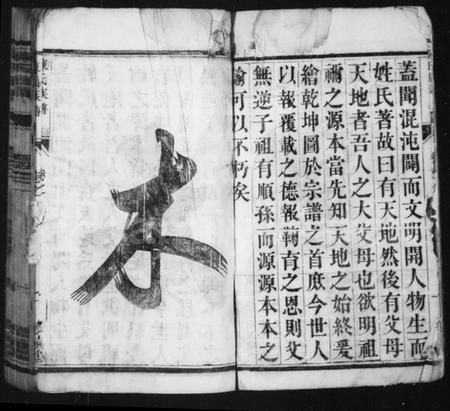 蓋聞混沌闢而文明開人物生而
姓氏著故曰有天地然後有父母
天地者吾人之大父母也欲明祖
禰之源本當先知天地之始終爰
繪乾坤圖於宗譜之首庶今世人
以報覆載之德報鞠育之恩則父
無逆子祖有順孫而源源本本之
論可以不朽矣
本
陳氏族譜
卷之一